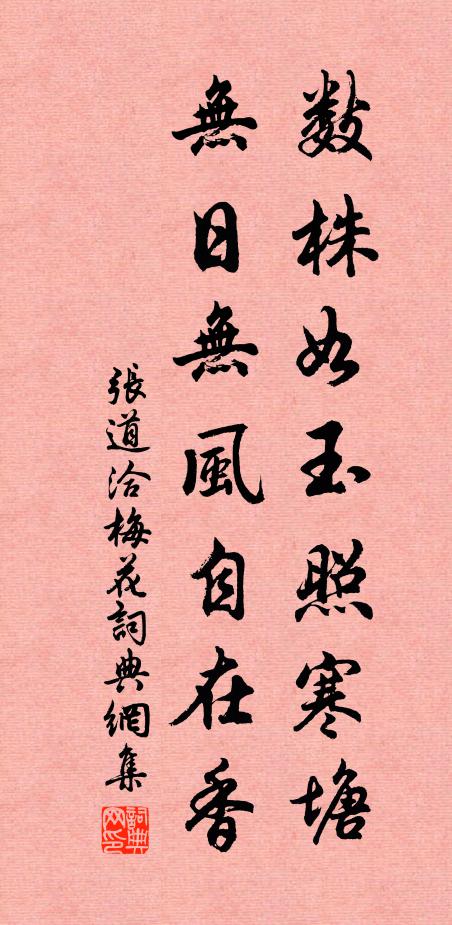 數株如玉照寒塘
無日無風自在香
張道洽梅花詞典網集
詞典
网印